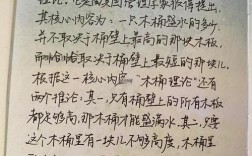 其核心内容为:一只木桶盛水的多少,
并不取决于桶壁上最高的那块木板,
而恰恰取决于桶壁上最短的那块。
根据这一核心内容,“木桶理论”还有
两个推论:其一,只有桶壁上的所有木板
都足够高,那木桶才能盛满水,其二,只要
这个木桶里有一块儿不够高度,木桶里